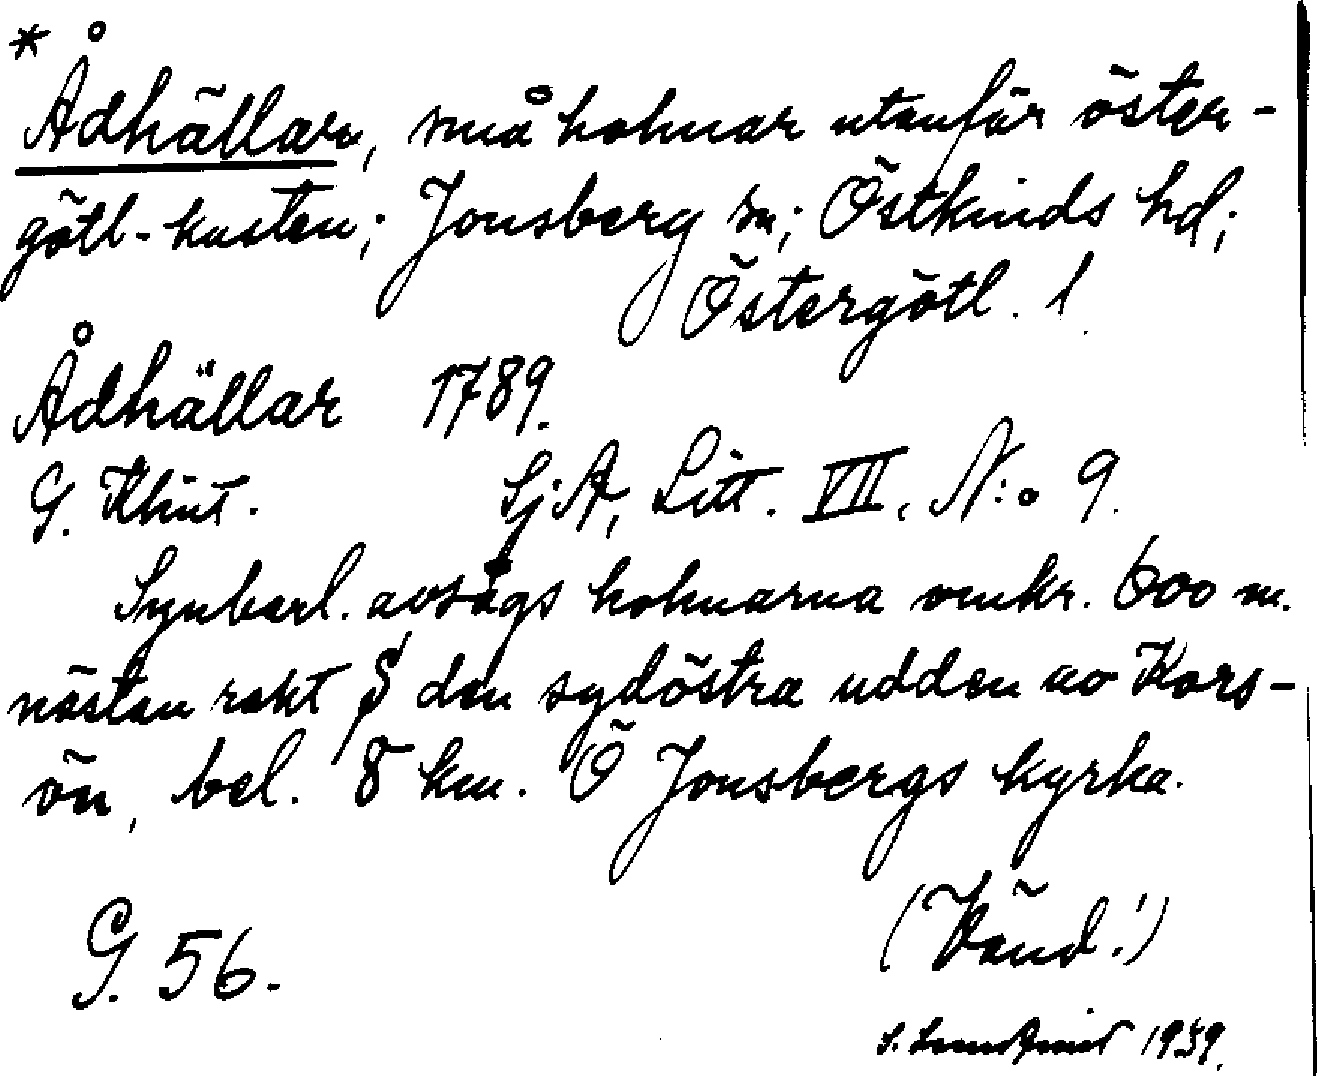 * Ådhällar, små holmar utanför öster-
götl-kusten; Jonsberg sn; Östkinds hd;
Östergötl. l
Ådhällar 1789.
G. Klint. Sj.A, Litt. VII, N:o 9.
Synbarl. avsågs holmarna omkr. 600 m.
nästan rakt S den sydöstra udden av Kors-
ön, bel. 8 km. Ö Jonsbergs kyrka.
G. 56. (Vänd!)
S. 1939.